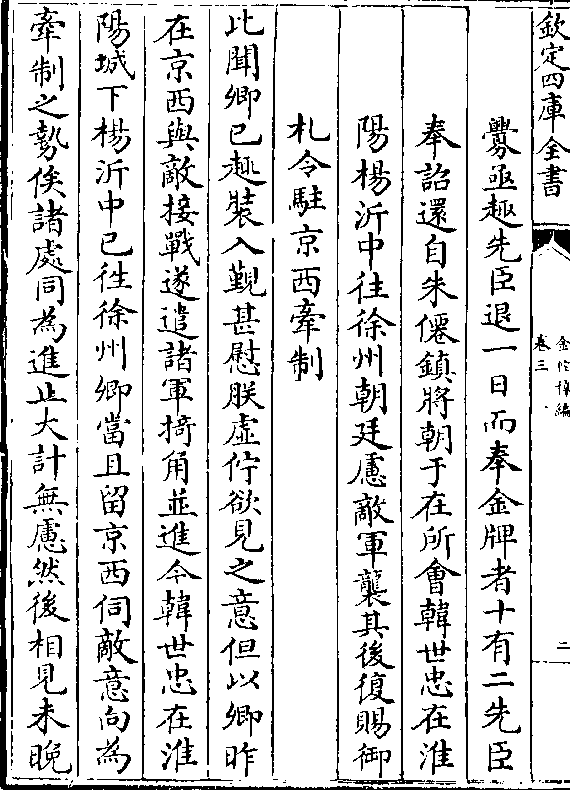 欽定四庫全書
金佗稡編
卷三
二
釁亟趣先臣退一日而奉金牌者十有二先臣
奉詔還自朱僊鎮將朝于在所會韓世忠在淮
陽楊沂中往徐州朝廷慮敵軍襲其後復賜御
札令駐京西牽制
比聞卿已趣裝入覲甚慰朕虛佇欲見之意但以卿昨
在京西與敵接戰遂遣諸軍掎角並進今韓世忠在淮
陽城下楊沂中已徃徐州卿當且留京西伺敵意向為
牽制之勢俟諸處同為進止大計無慮然後相見未晚